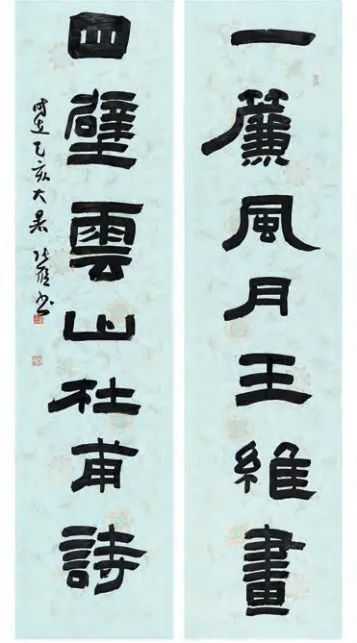 一簾風月王維畫
四壁雲山杜甫詩
歲在乙亥大暑